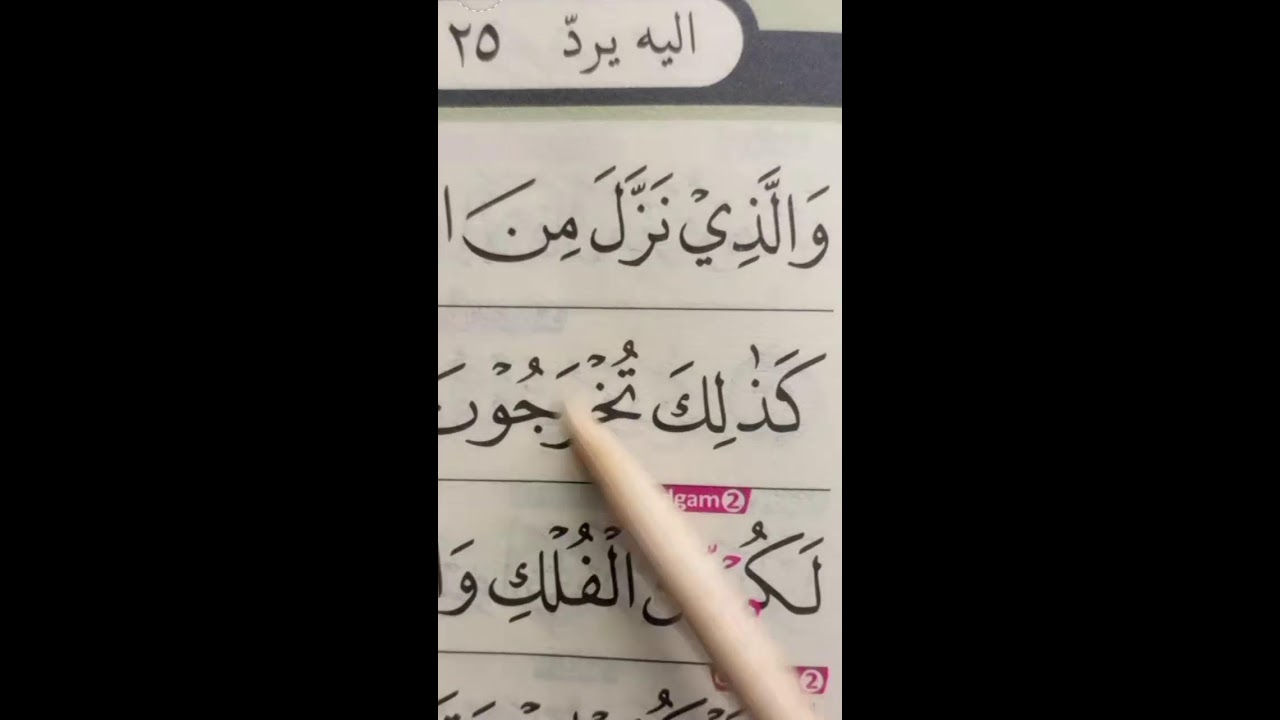 اليه يردّ ٢٥
وَالَّذِيْ نَزَّلَ مِنَ
كَذٰلِكَ تُخْرَجُوْنَ
lgam 2
الْفُلْكِ
2